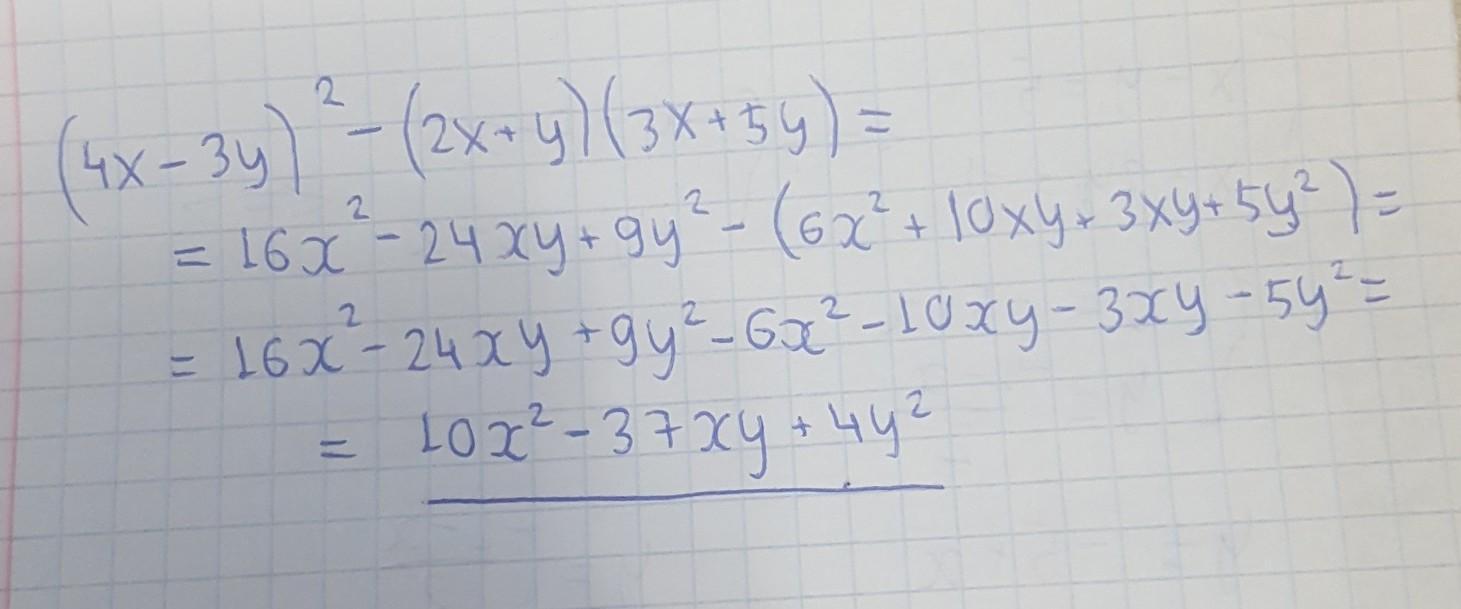 (4x-3y)²-(2x+y)(3x+5y)=
=16x²-24xy+9y²-(6x²+10xy+3xy+5y²)=
=16x²-24xy+9y²-6x²-10xy-3xy-5y²=
=10x²-37xy+4y²